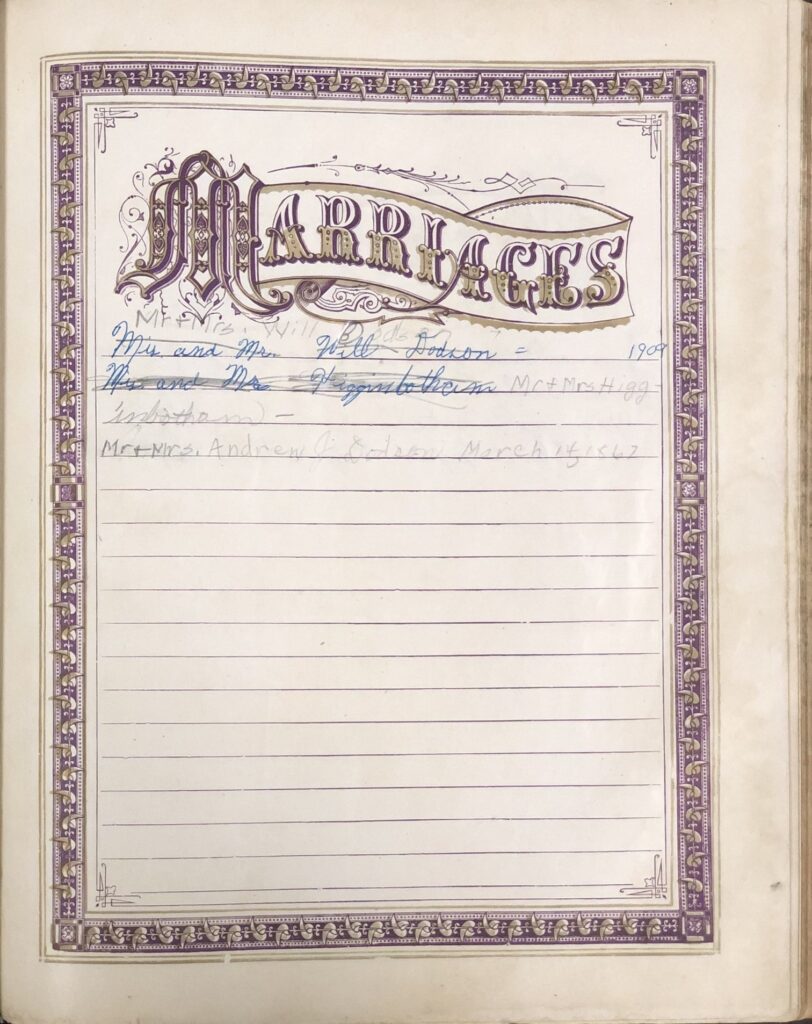 MARRIAGES
Mr + Mrs. Will Dodson
Mrs. and Mr. Will Dodson = 1909
Mrs. and Mr. Higginbotham Mr + Mrs Higg-
inbotham -
Mr + Mrs. Andrew J. Dodson March 14, 1867